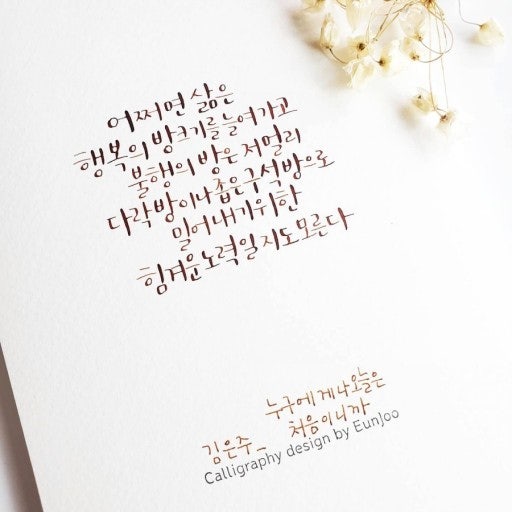 어쩌면 삶은
행복의 방 크기를 늘여가고
불행의 방은 저멀리
다락방이나 좁은 구석방으로
밀어내기 위한
힘겨운 노력일지도 모른다
누구에게나 오늘은
처음이니까
김은주_
Calligraphy design by EunJoo